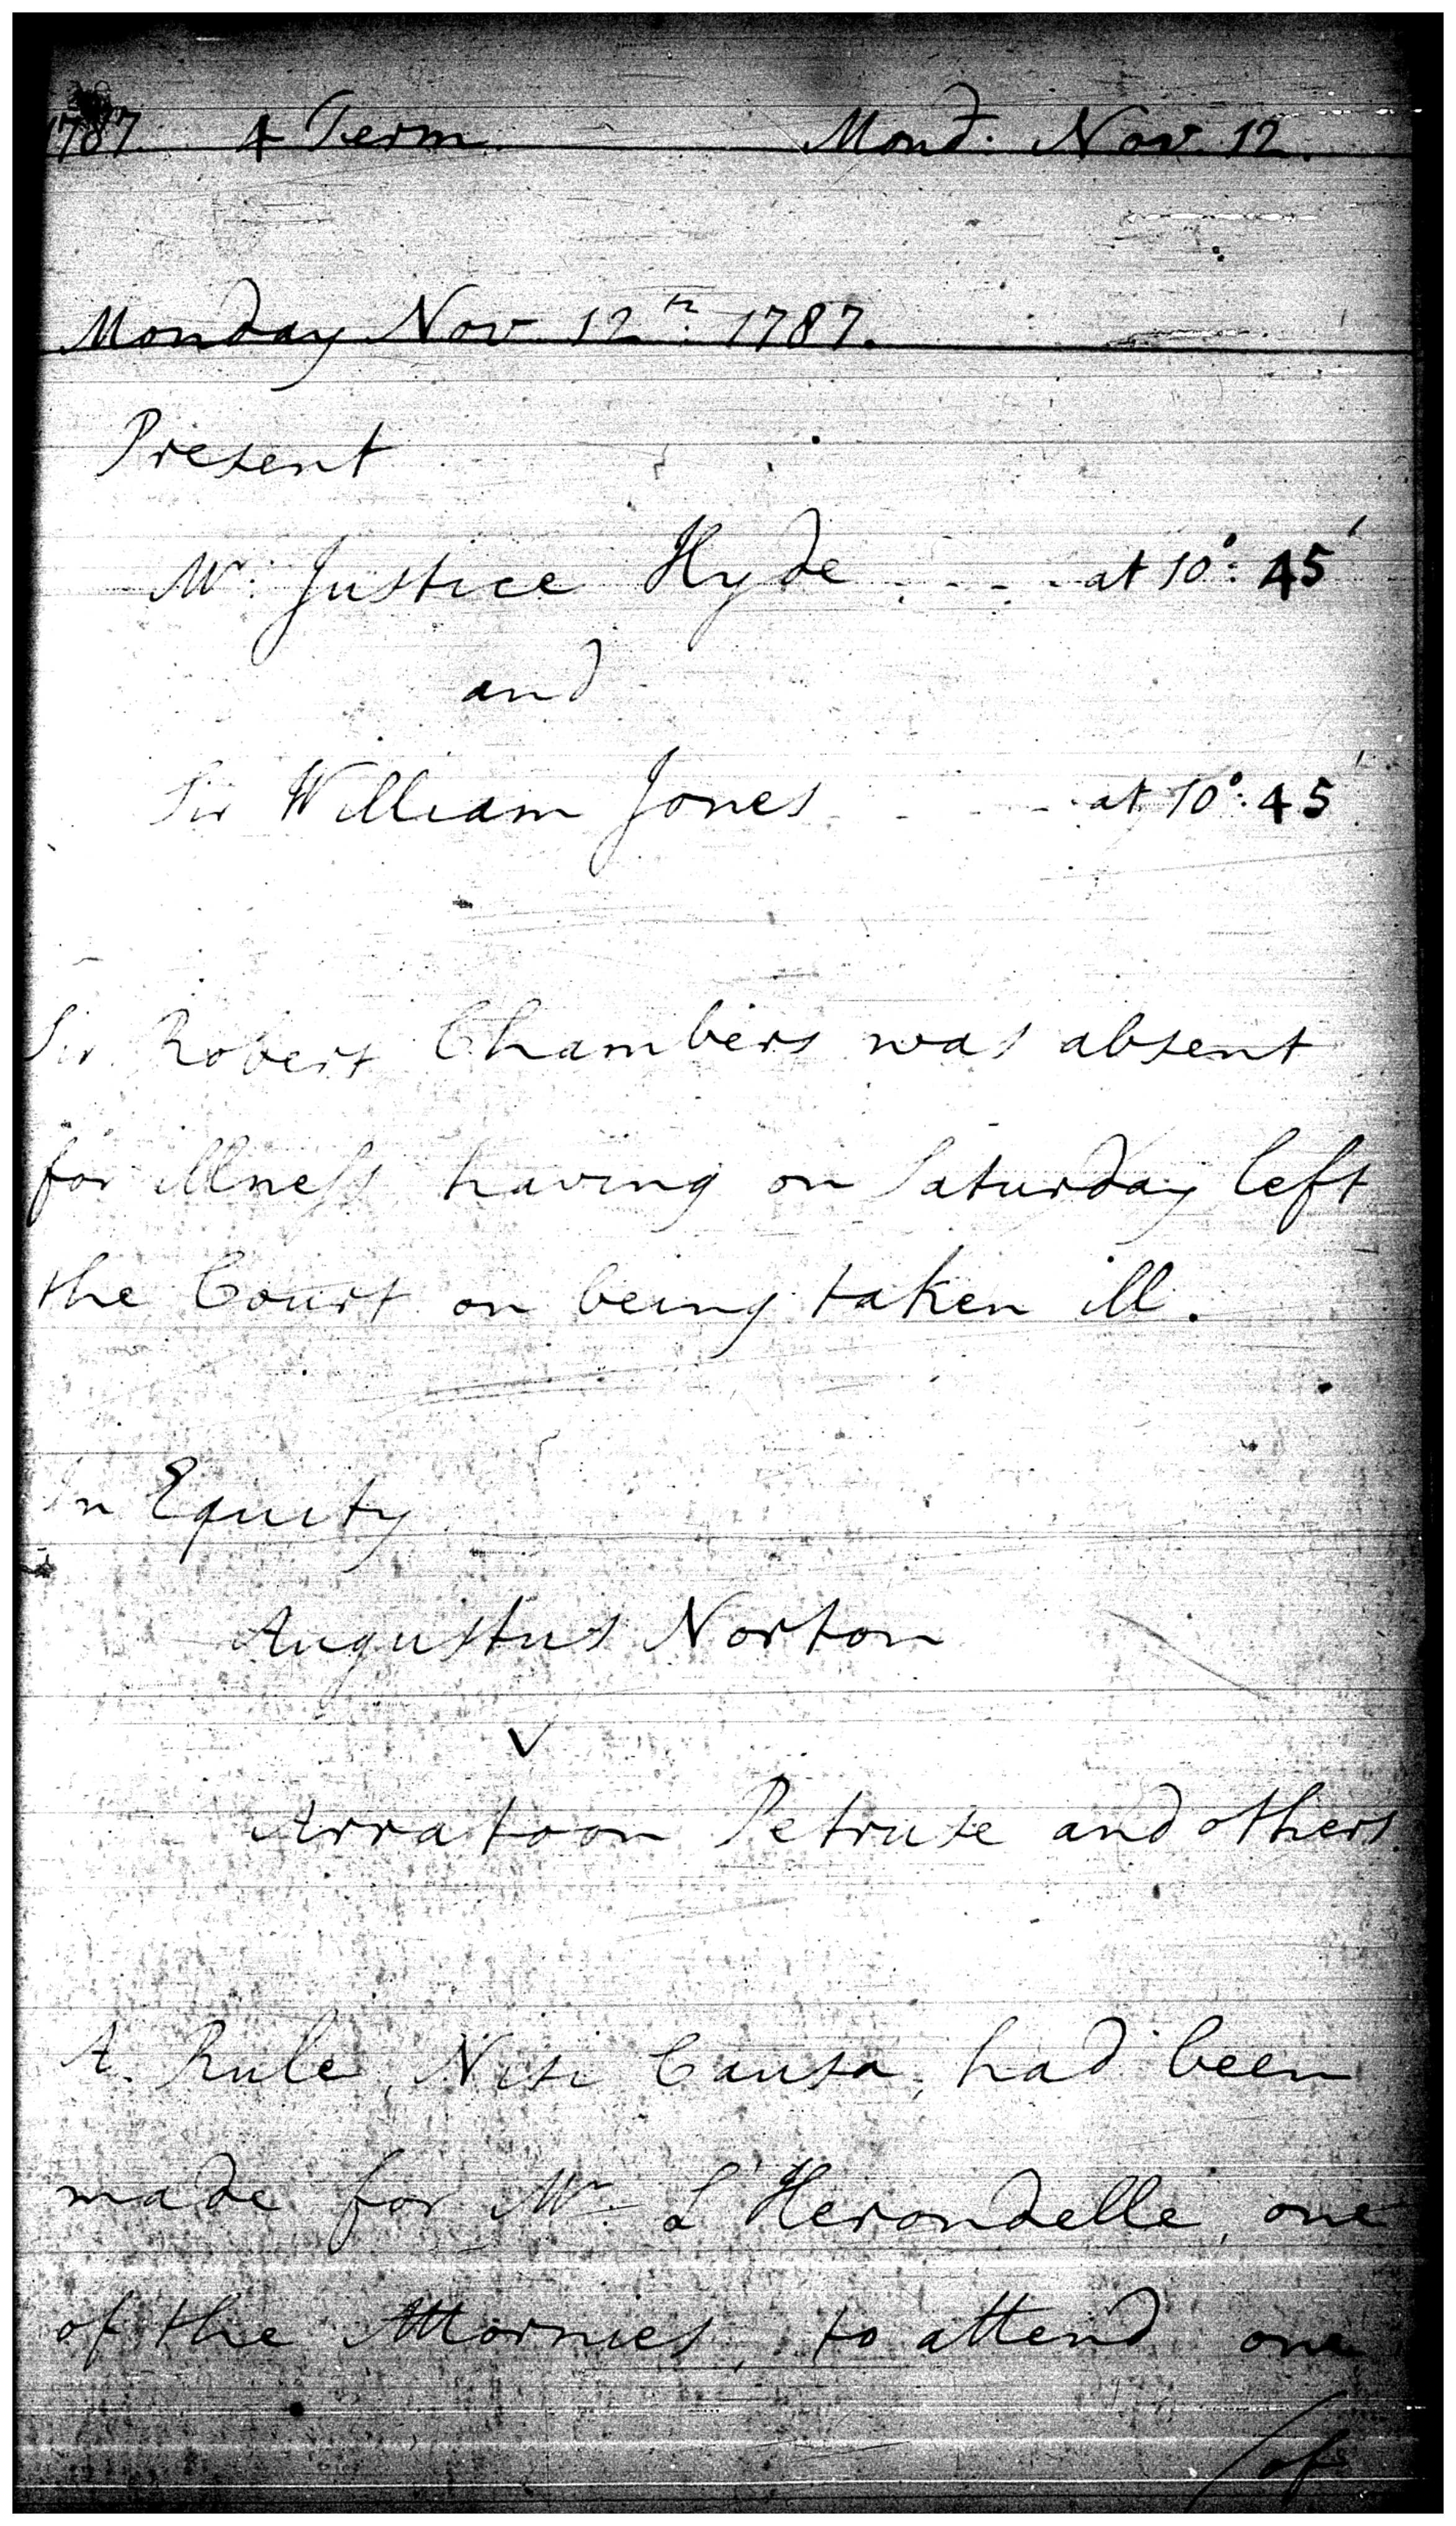 1787. 4 Term. Mond. Nov. 12.
Monday Nov. 12th. 1787.
Present
Mr. Justice Hyde . - - . at 10°: 45'
and
Sir William Jones . . - - at 10°: 45'
Sir Robert Chambers was absent
for illness having on Saturday left
the Court on being taken ill.
In Equity
Augustus Norton
v
Arratoon Petruse and others.
A Rule, Nisi Causa, had been
made for Mr. L'Herondelle, one
of the Attornies, to attend one
/of